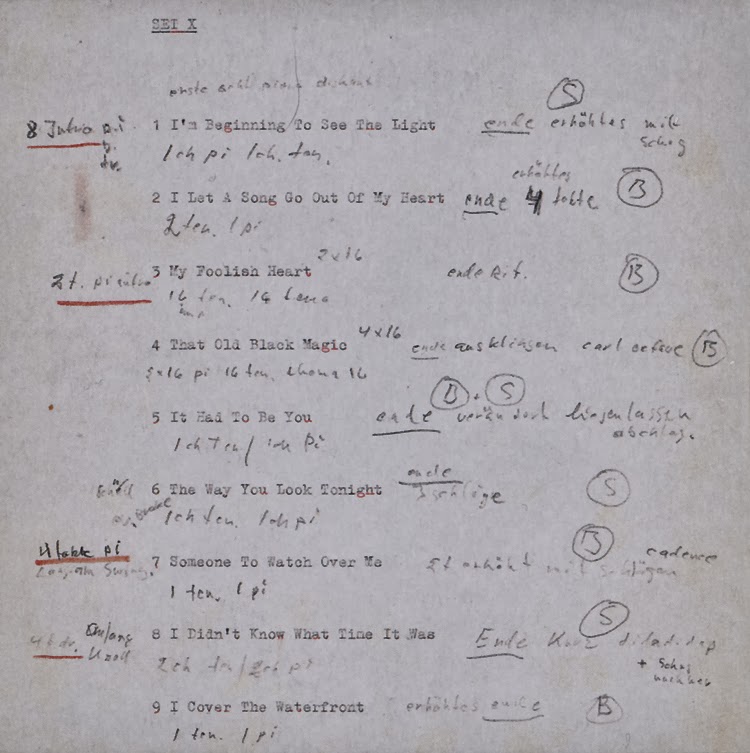 SET X
erste acht
S
8 Intro pi
1 I'm Beginning To See The Light
ende erhöhtes mit
Schlag
1ch pi 1ch. ten.
erhöhtes
2 I Let A Song Go Out Of My Heart
ende 4 takte
B
2 ten. 1 pi
2 x 16
3 My Foolish Heart
ende Rit.
B
2t. pi intro
16 ten. 16
4 x 16
4 That Old Black Magic
ende ausklingen
B
pi 16 ten. 16
B + S
5 It Had To Be You
ende liegenlassen
abschlag.
1ch Ten / 1ch Pi
ende
6 The Way You Look Tonight
3 schläge
S
1ch ten. 1ch pi
4 takte pi
B
cadence
7 Someone To Watch Over Me
2t erhöht mit schlägen
Langsam Swing.
1 ten. 1 pi
S
4t dr. Anfang
8 I Didn't Know What Time It Was
Ende Kurz
+ Schlag
nachher
2ch ten / 2ch pi
9 I Cover The Waterfront
erhöhtes ende
B
1 ten. 1 pi